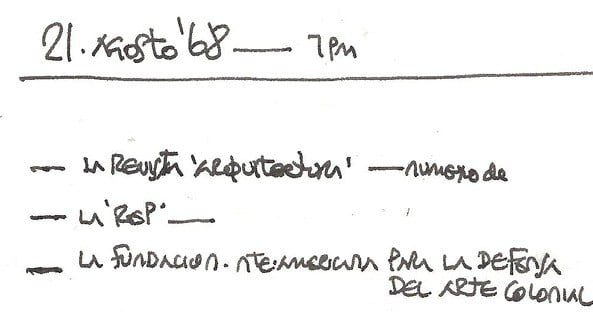 21. Agosto '68 — 7 pm
— La Revista 'Arquitectura' — numero de
— La 'RSP' —
— La Fundacion. Interamericana para la defensa
del arte colonial